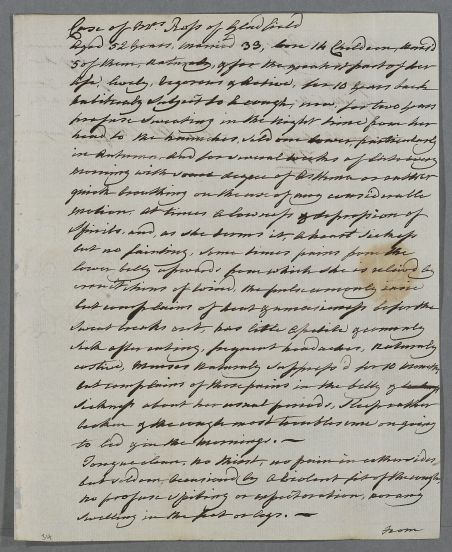 Case of Mrs Ross of Gladfield
Aged 52 years, married 33, bore 14 Children, nurs'd
5 of them, naturally, & for the greatest part of her
life, lively, vigorous & active, for 10 years back
habitually subject to a cough, now, for two years
profuse Sweating in the Night time from her
head to the haunches, seldom lower, particularly
in Autumn, and for several weeks of late every
morning with some degree of Asthma or rather
quick breathing on the use of any considerable
motion. At times a lowness & depression of
Spirits, and, as she terms it, a heart sickness
but no fainting, some times pains from the
lower belly upwards, from which she is relieved by
eructations of wind, the pulse commonly
but complains of heat & uneasiness before the
Sweat breaks out, has little appetite & commonly
Sick after eating, frequent headaches, Naturally
costive, Menses Naturally Suppress'd for 10 Months,
but complains of those pains in the belly &
Sickness about her usual periods, Sleep rather
broken & the cough most troublesome on going
to bed & in the mornings. —
Tongue clean, no thirst, no pain in either sides,
but seldom, occasion'd by a violent fit of the cough,
no profuse spitting or expectoration, nor any
Swelling in the feet or legs. —
from
34